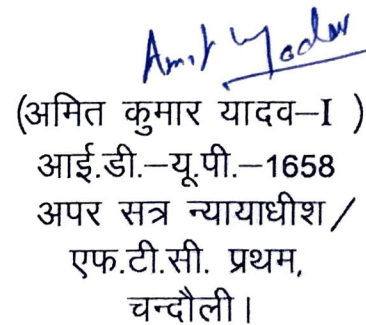 Amit Yadav
(अमित कुमार यादव–I )
आई.डी.–यू.पी.–1658
अपर सत्र न्यायाधीश /
एफ.टी.सी. प्रथम,
चन्दौली।